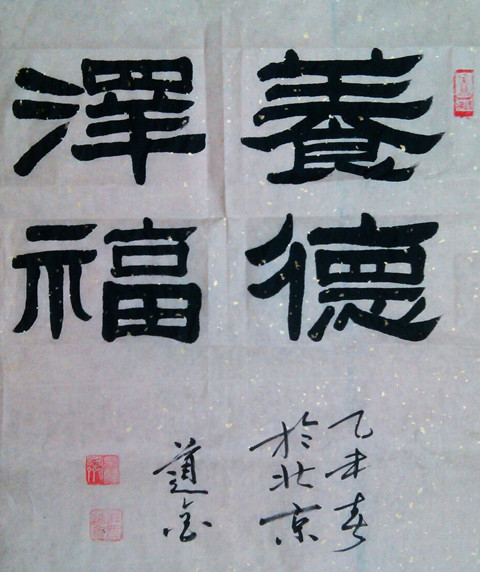 養德
澤福
乙未春
於北京